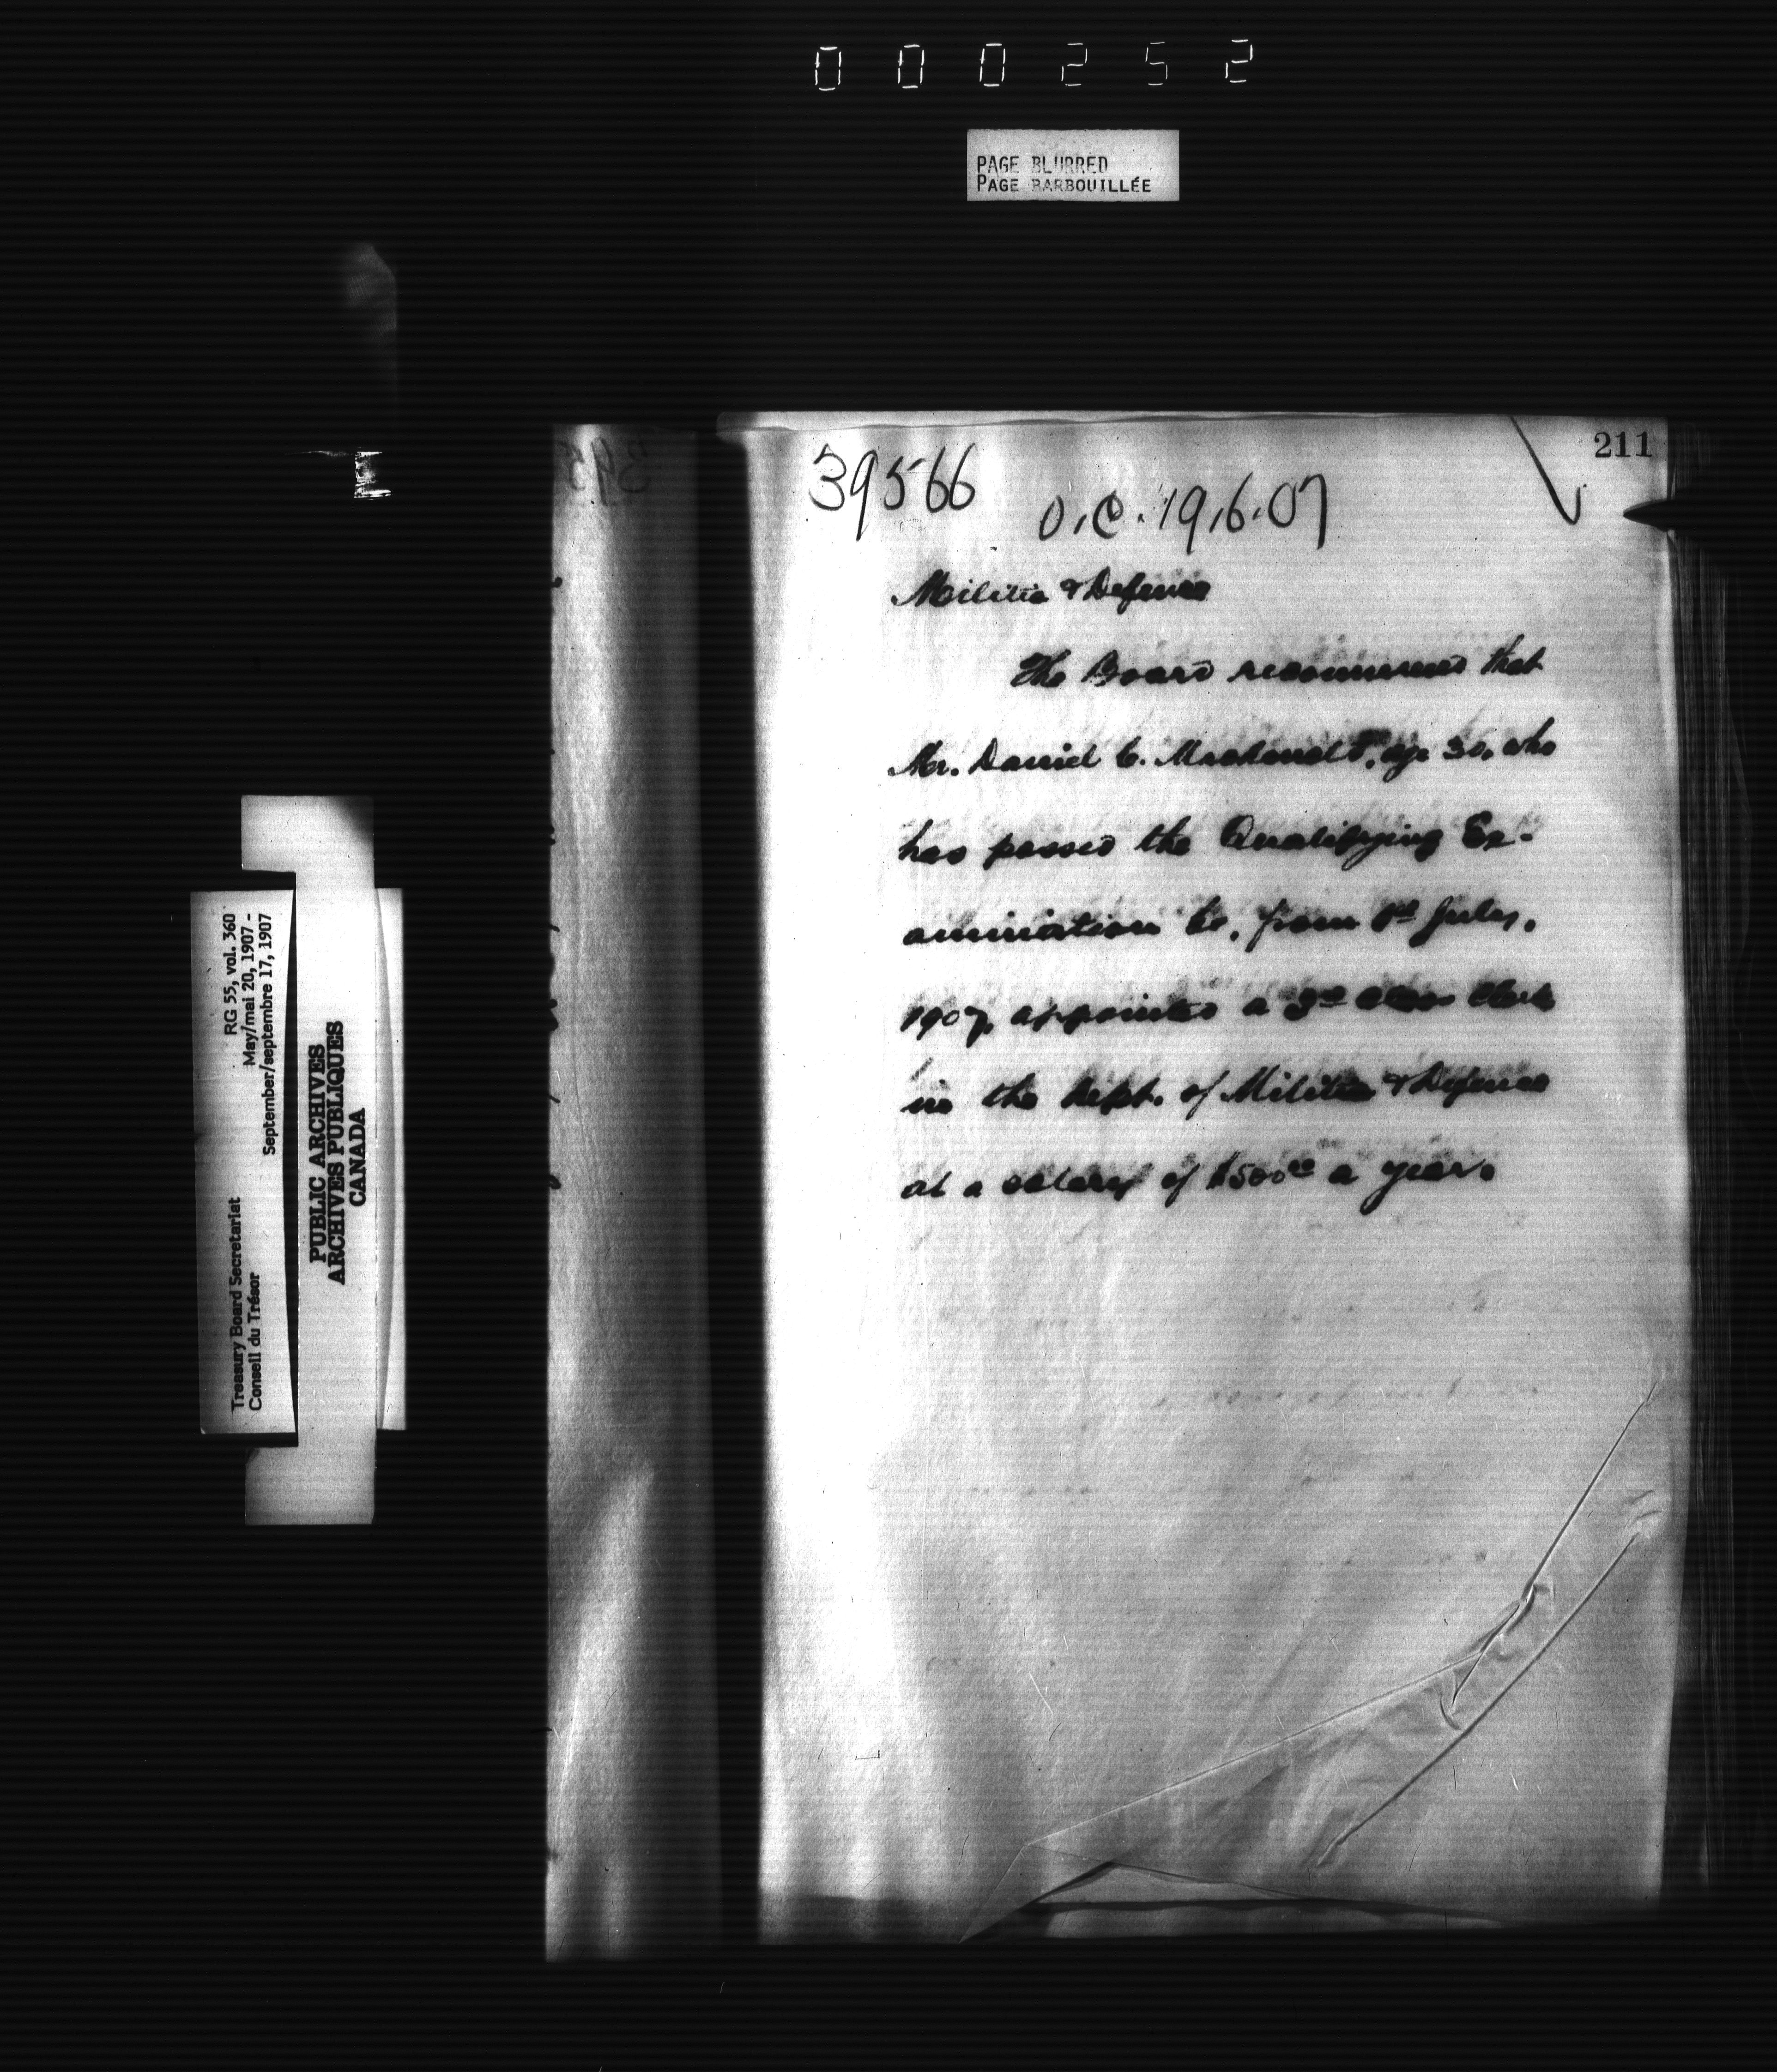 000252
PAGE BLURRED
PAGE BARBOUILLÉE
211
39566
O.C. 19.6.07
Militia & Defence
The Board recommend that
Mr. Daniel C. Macdonald, age 30, who
has passed the Qualifying Ex-
amination be, from 1st July,
1907, appointed a 3rd Class Clerk
in the Dept. of Militia & Defence
at a salary of $500 00 a year.
Treasury Board Secretariat
Conseil du Trésor
RG 55, vol. 360
May/mai 20, 1907 -
September/septembre 17, 1907
PUBLIC ARCHIVES
ARCHIVES PUBLIQUES
CANADA